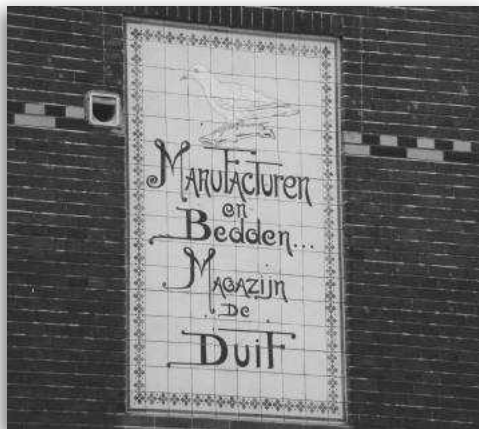 Manufacturen
en
Bedden...
Magazijn
De
Duif